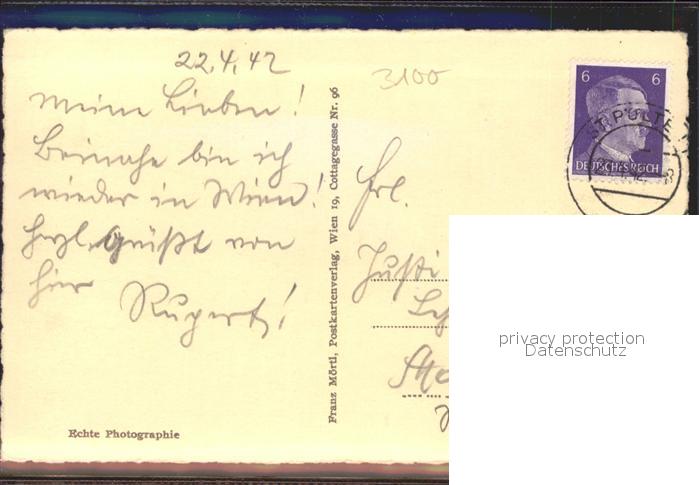 22.4.42
3100
6 6
ST. PÖLTE
DEUTSCHES REICH
Meine Lieben!
Beinahe bin ich
wieder in Wien!
Hzl. Grüßt von
hier Rupert!
Franz Mörtl, Postkartenverlag, Wien 19, Cottagegasse Nr. 96
Frl.
Justi
privacy protection
Datenschutz
Echte Photographie